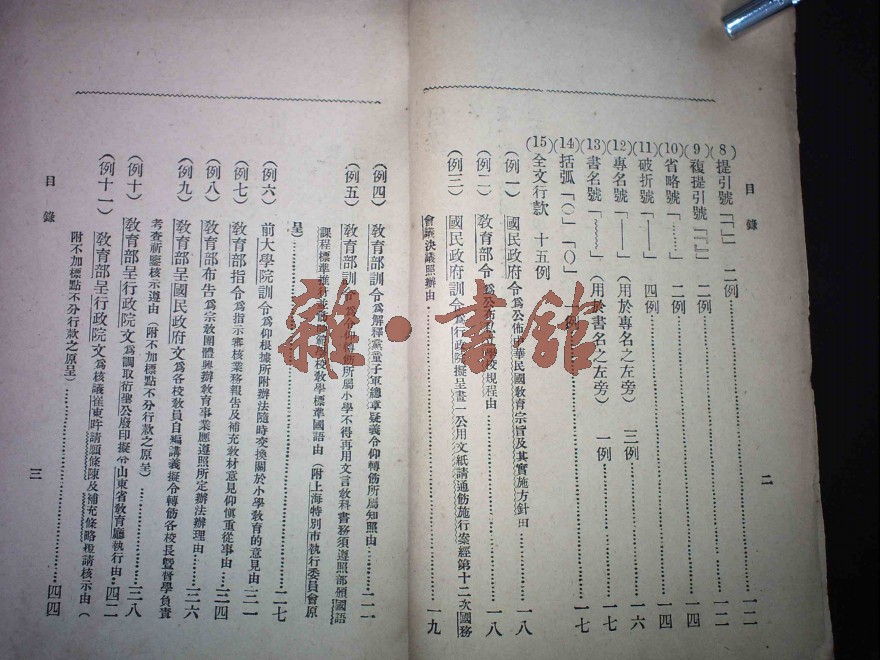 目錄
二
(8)提引號「「」」二例……一二
(9)複提引號「『』」二例……一二
(10)省略號「……」二例……一四
(11)破折號「——」四例……一四
(12)專名號「——」(用於專名之左旁)三例……一六
(13)書名號「﹏﹏」(用於書名之左旁)一例……一七
(14)括弧「()」「〔〕」例……一七
(15)全文行款 十五例
(例一)國民政府令爲公佈中華民國敎育宗旨及其實施方針由……一八
(例二)敎育部令爲公布 校規程由……一八
(例三)國民政府訓令 行政院擬呈畫一公用文紙請通飭施行案經第十二次國務
會議決議照辦由……一九
(例四)敎育部訓令爲解釋黨童子軍總章疑義令仰轉飭所屬知照由……二二
(例五)敎育部訓令爲令仰轉飭所屬小學不得再用文言敎科書務須遵照部頒國語
課程標準推行並 校敎學標準國語由(附上海特別市執行委員會原
呈)……二七
(例六)前大學院訓令爲仰根據所附辦法隨時交換關於小學敎育的意見由……三一
(例七)敎育部指令爲指示審核業務報告及補充敎材意見仰愼重從事由……三四
(例八)敎育部布告爲宗敎團體興辦敎育事業應遵照所定辦法辦理由……三六
(例九)敎育部呈國民政府文爲各校敎員自編講義擬令轉飭各校長暨督學負責
考查祈鑒核示遵由(附不加標點不分行款之原呈)……三八
(例十)敎育部呈行政院文爲調取衍聖公廢印擬令山東省敎育廳執行由……四二
(例十一)敎育部呈行政院文爲核議崔東昨請願條陳及補充條略複請核示由(
附不加標點不分行款之原呈)……四四
目錄
三
雜·書館